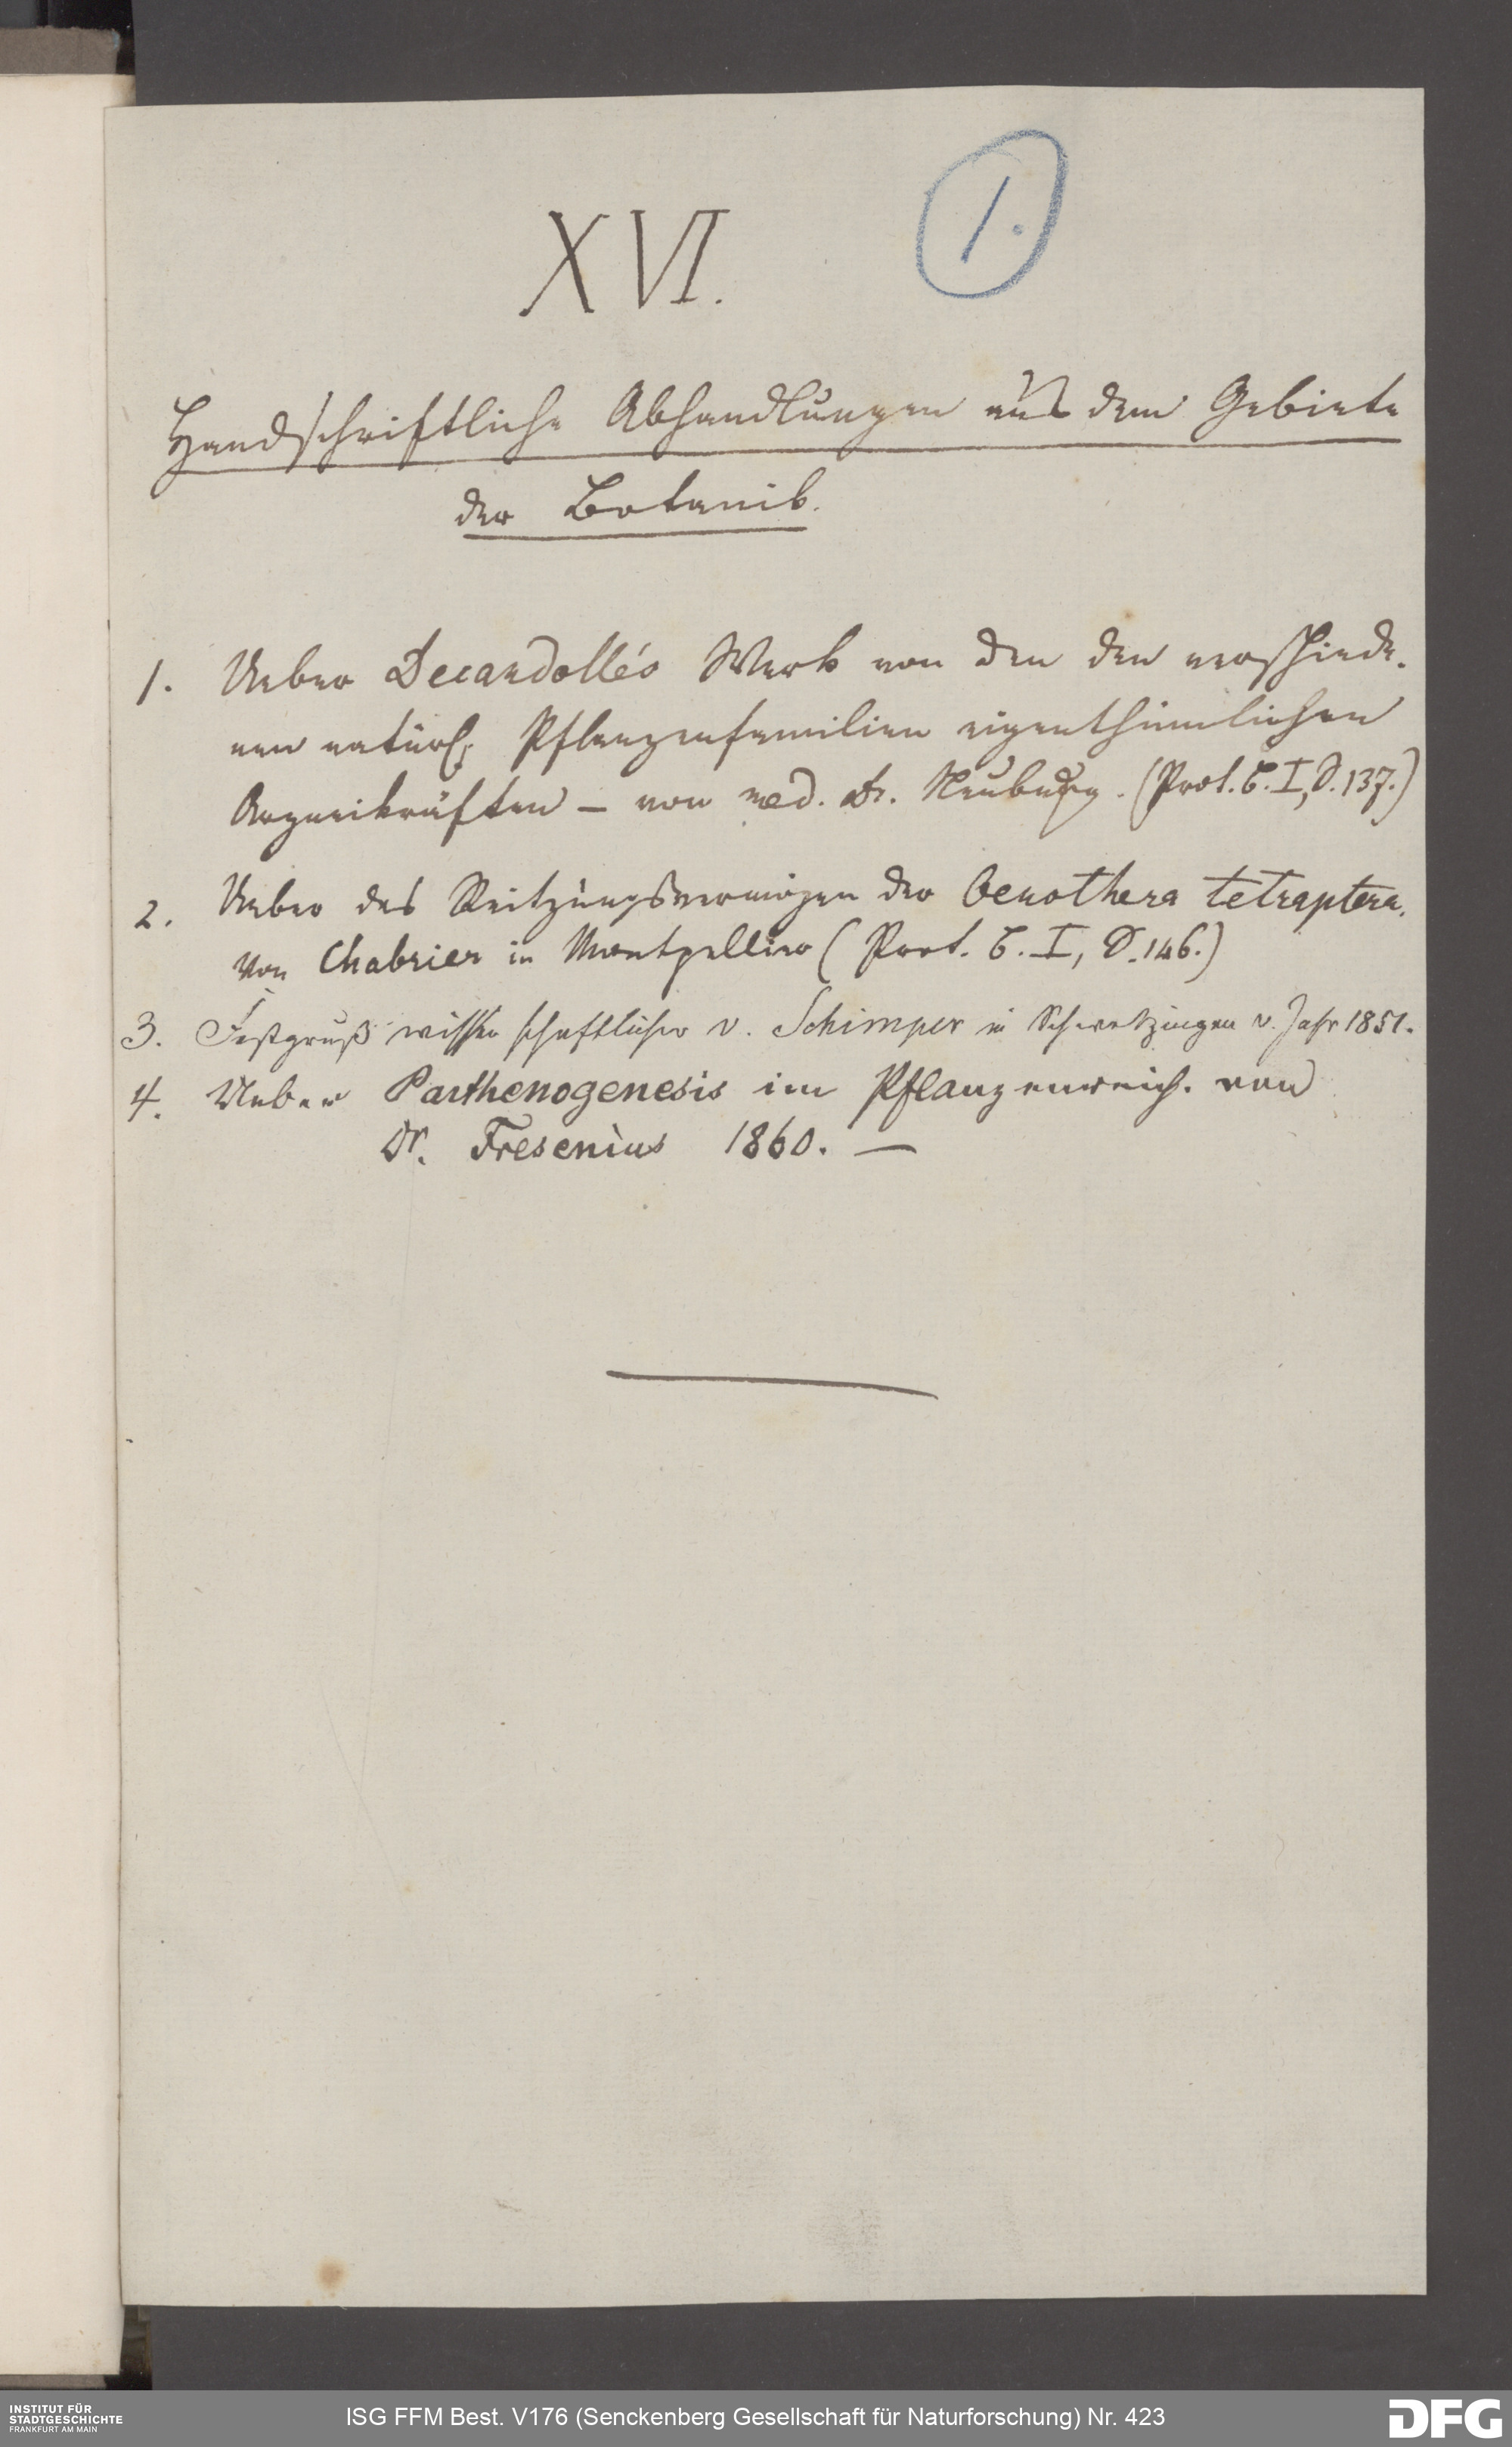 XVI.
1.
Handschriftliche Abhandlungen aus dem Gebiete
der Botanik.
1. Ueber Decandolle's Werk von den den verschiede-
nen natürl. Pflanzenfamilien eigenthümlichen
Arzneikräften – von med. Dr. Neuburg. (Prot. B. I, S. 137.)
2. Ueber das Reitzungsvermögen der Oenothera tetraptera.
von Chabrier in Montpellier (Prot. B. I, S. 146.)
3. Festgruß wissenschaftlicher v. Schimper in Schwetzingen v. Jahr 1851.
4. Ueber Parthenogenesis im Pflanzenreich. von
Dr. Fresenius 1860. —
INSTITUT FÜR
STADTGESCHICHTE
FRANKFURT AM MAIN
ISG FFM Best. V176 (Senckenberg Gesellschaft für Naturforschung) Nr. 423
DFG